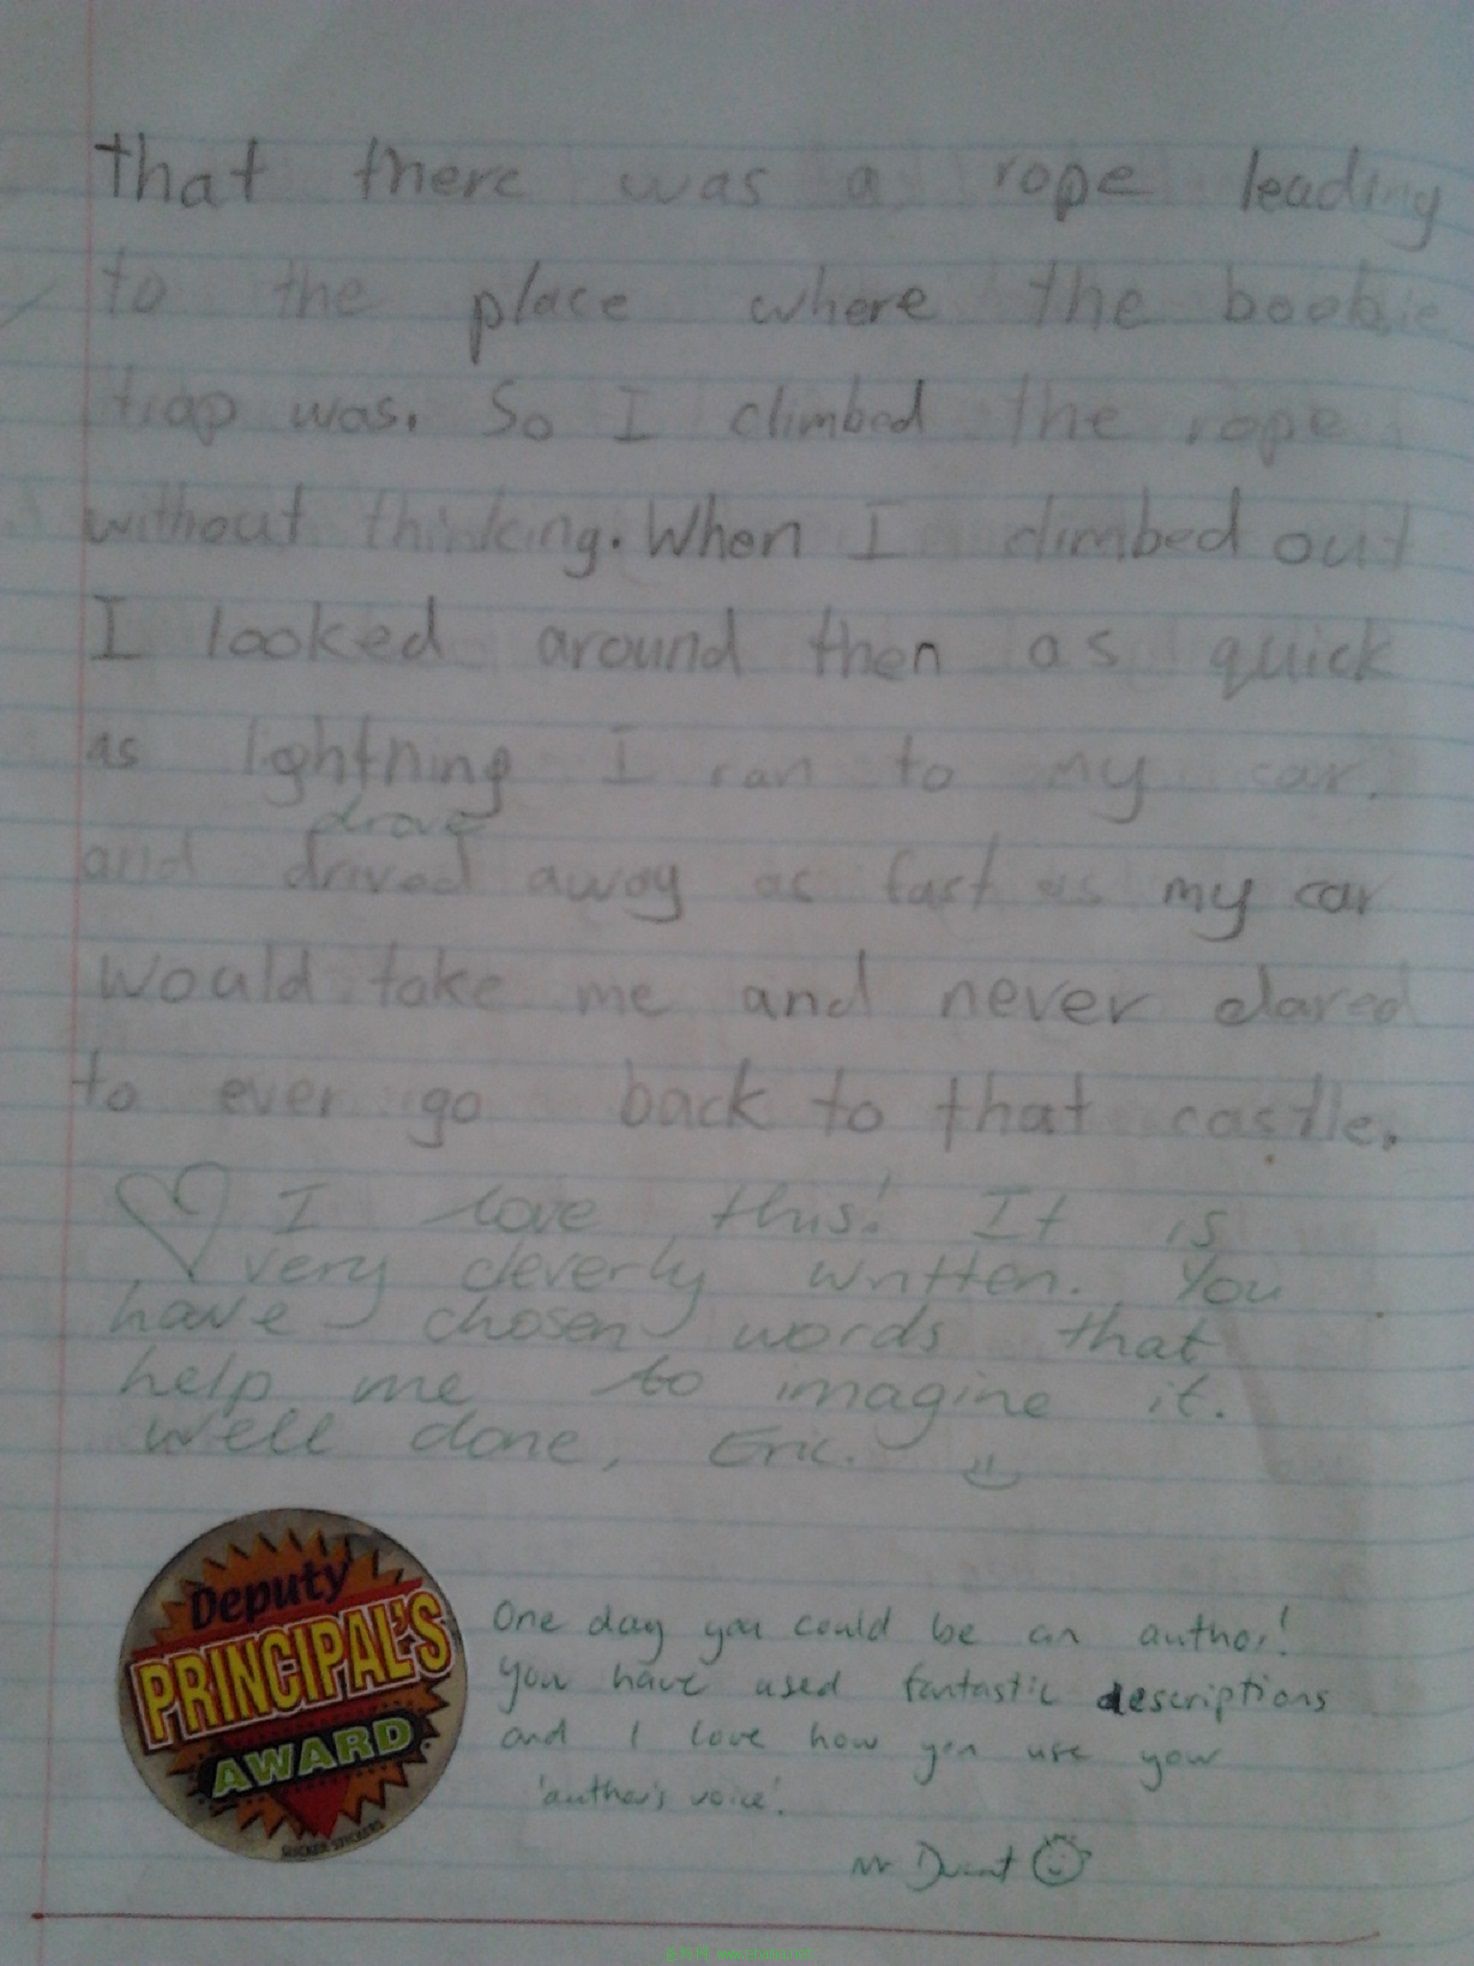 that there was a rope leading
to the place where the boobie
trap was. So I climbed the rope
without thinking. When I climbed out
I looked around then as quick
as lightning I ran to my car.
drove
and drived away as fast as my car
would take me and never dared
to ever go back to that castle.
I love this! It is
very cleverly written. You
have chosen words that
help me to imagine it.
Well done, Eric.
Deputy
PRINCIPAL'S
AWARD
One day you could be an author!
You have used fantastic descriptions
and I love how you use your
'author's voice'.
Mr